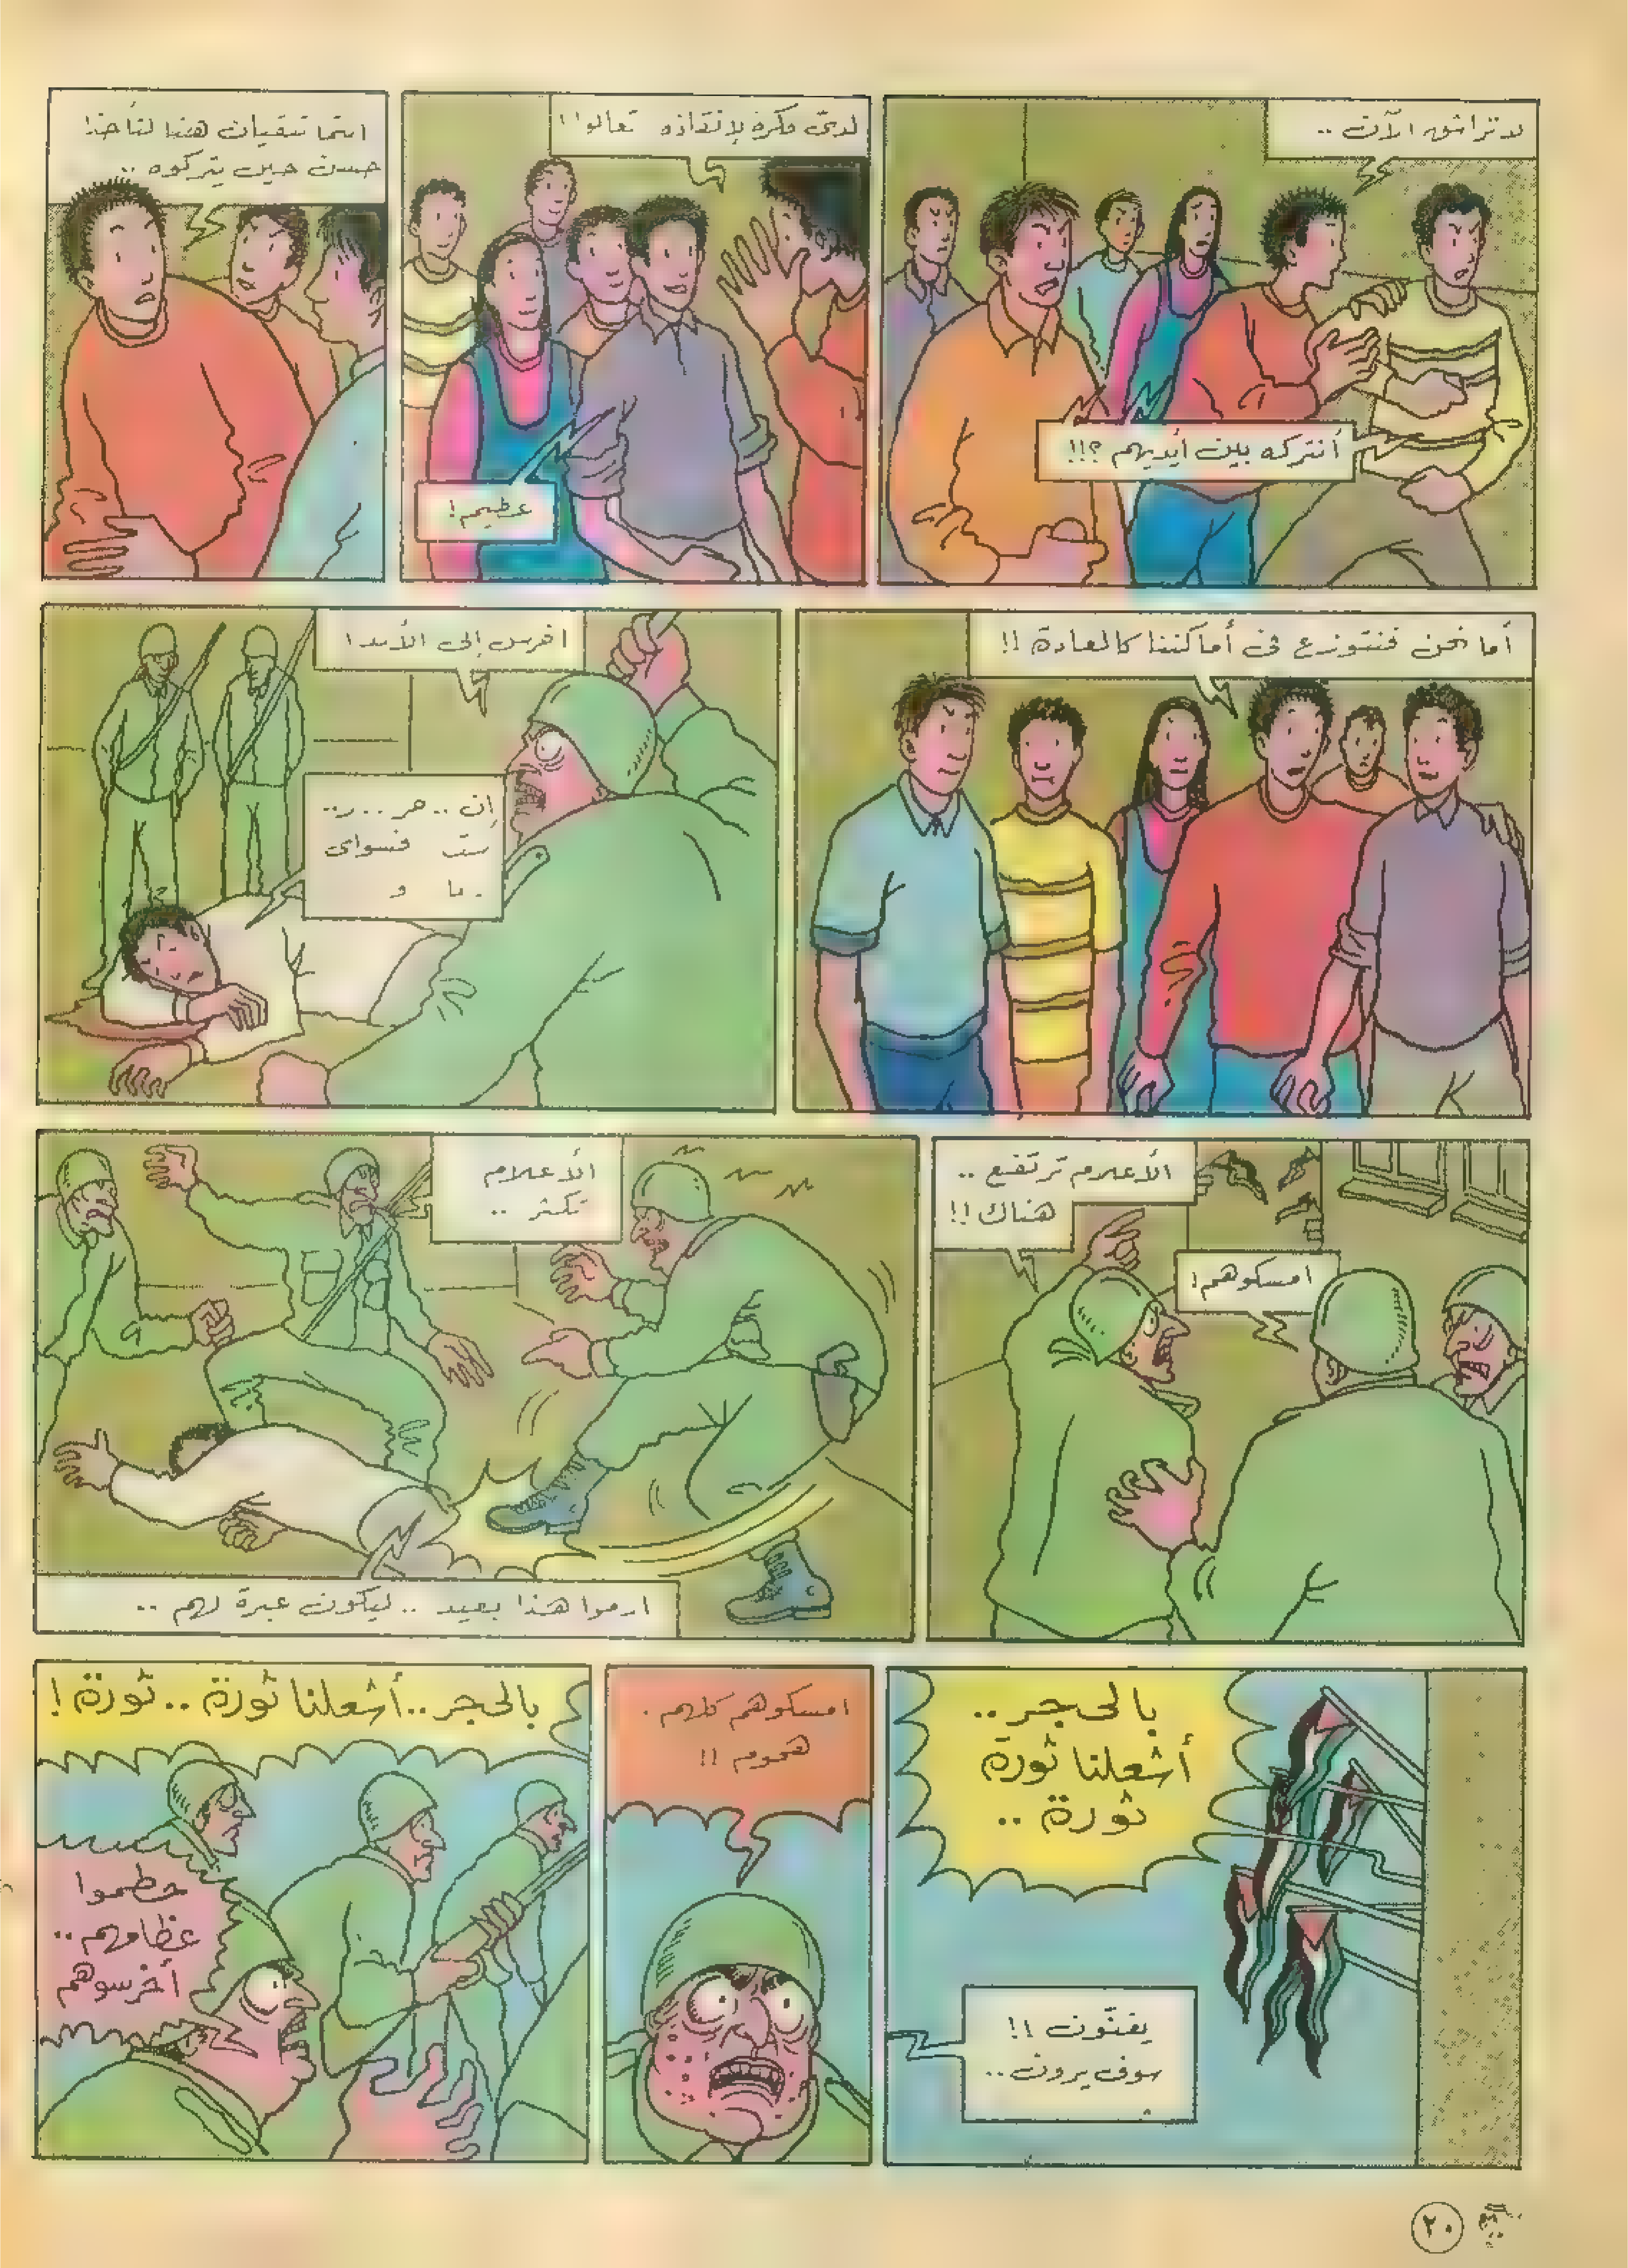 لا تراشق الآن ..
أنتركه بين أيديهم ؟!!
لديّ فكرة لإنقاذه تعالوا !
عظيم !
انتما تبقيان هنا لتأخذا
حسن حين يتركوه ..
أما نحن فنتوزع في أماكننا كالعادة !!
اخرس إلى الأبد !
إن .. خر .. ر ..
ست فسواي
ما و
الأعلام ترتفع ..
هناك !!
امسكوهم !
الأعلام
تكثر ..
ارموا هذا بعيد .. ليكون عبرة لهم ..
بالحجر ..
أشعلنا ثورة
ثورة ..
يغنّون !!
سوف يرون ..
امسكوهم كلهم .
هجوم !!
بالحجر .. أشعلنا ثورة .. ثورة !
حطموا
عظامهم ..
أخرسوهم
٢٠